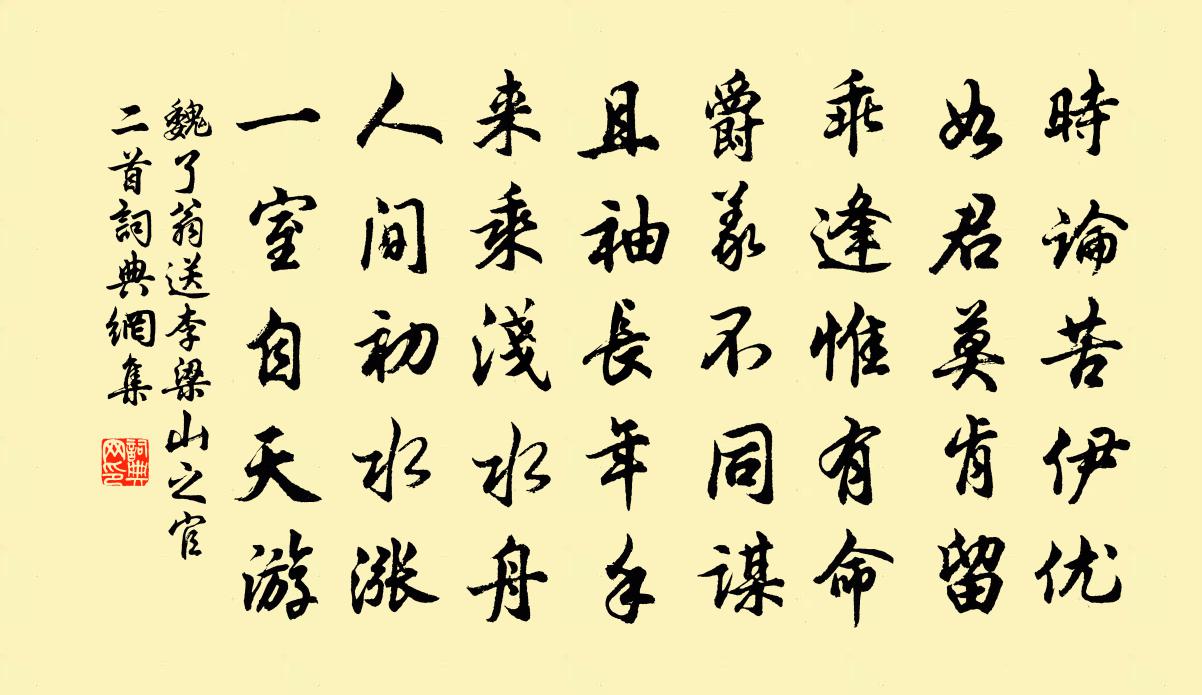 時論苦伊优
如君莫肯留
乖逢惟有命
爵義不同謀
且袖長年手
来乘淺水舟
人間初水漲
一室自天游
魏了翁送李梁山之官
二首詞典網集
詞典网印